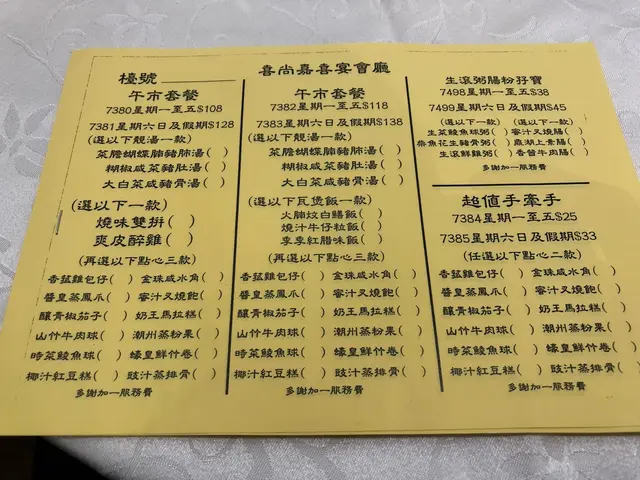 喜尚嘉喜宴會廳
檯號
午市套餐
7380星期一至五$108
7381星期六日及假期$128
(選以下靚湯一款)
菜膽蝴蝶腩豬肺湯( )
糊椒咸菜豬肚湯( )
大白菜咸豬骨湯( )
(選以下一款)
燒味雙拼( )
爽皮醉雞( )
(再選以下點心三款)
香菇雞包仔( ) 金珠咸水角( )
醬皇蒸鳳爪( ) 蜜汁叉燒飽( )
釀青椒茄子( ) 奶王馬拉糕( )
山竹牛肉球( ) 潮州蒸粉果( )
時菜鯪魚球( ) 蠔皇鮮竹卷( )
椰汁紅豆糕( ) 豉汁蒸排骨( )
多謝加一服務費
午市套餐
7382星期一至五$118
7383星期六日及假期$138
(選以下靚湯一款)
菜膽蝴蝶腩豬肺湯( )
糊椒咸菜豬肚湯( )
大白菜咸豬骨湯( )
(選以下瓦煲飯一款)
火腩炆白鱔飯( )
燒汁牛仔粒飯( )
季季紅腊味飯( )
(再選以下點心三款)
香菇雞包仔( ) 金珠咸水角( )
醬皇蒸鳳爪( ) 蜜汁叉燒飽( )
釀青椒茄子( ) 奶王馬拉糕( )
山竹牛肉球( ) 潮州蒸粉果( )
時菜鯪魚球( ) 蠔皇鮮竹卷( )
椰汁紅豆糕( ) 豉汁蒸排骨( )
多謝加一服務費
生滾粥腸粉孖寶
7498星期一至五$38
7499星期六日及假期$45
(選以下一款) (選以下一款)
生菜鯪魚球粥( ) 蜜汁叉燒腸( )
柴魚花生豬骨粥( ) 鼎湖上素腸( )
生滾鮮雞粥( ) 香茜牛肉腸( )
多謝加一服務費
超值手牽手
7384星期一至五$25
7385星期六日及假期$33
(任選以下點心二款)
香菇雞包仔( ) 金珠咸水角( )
醬皇蒸鳳爪( ) 蜜汁叉燒飽( )
釀青椒茄子( ) 奶王馬拉糕( )
山竹牛肉球( ) 潮州蒸粉果( )
時菜鯪魚球( ) 蠔皇鮮竹卷( )
椰汁紅豆糕( ) 豉汁蒸排骨( )
多謝加一服務費